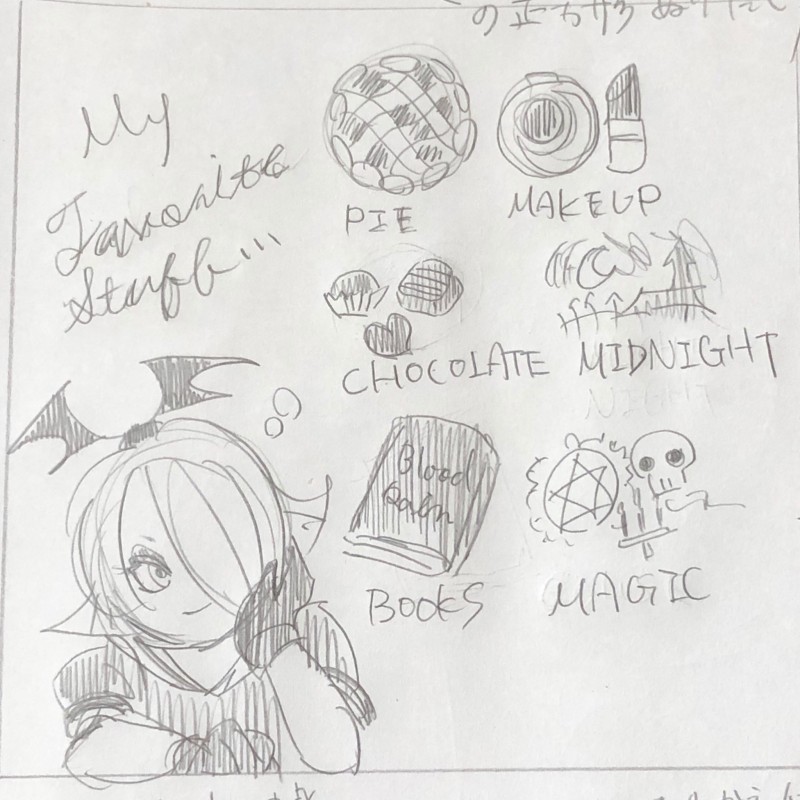 My
Favorite
Stuff...
PIE
MAKEUP
CHOCOLATE
MIDNIGHT
NIGHT
Blood
BOOKS
MAGIC